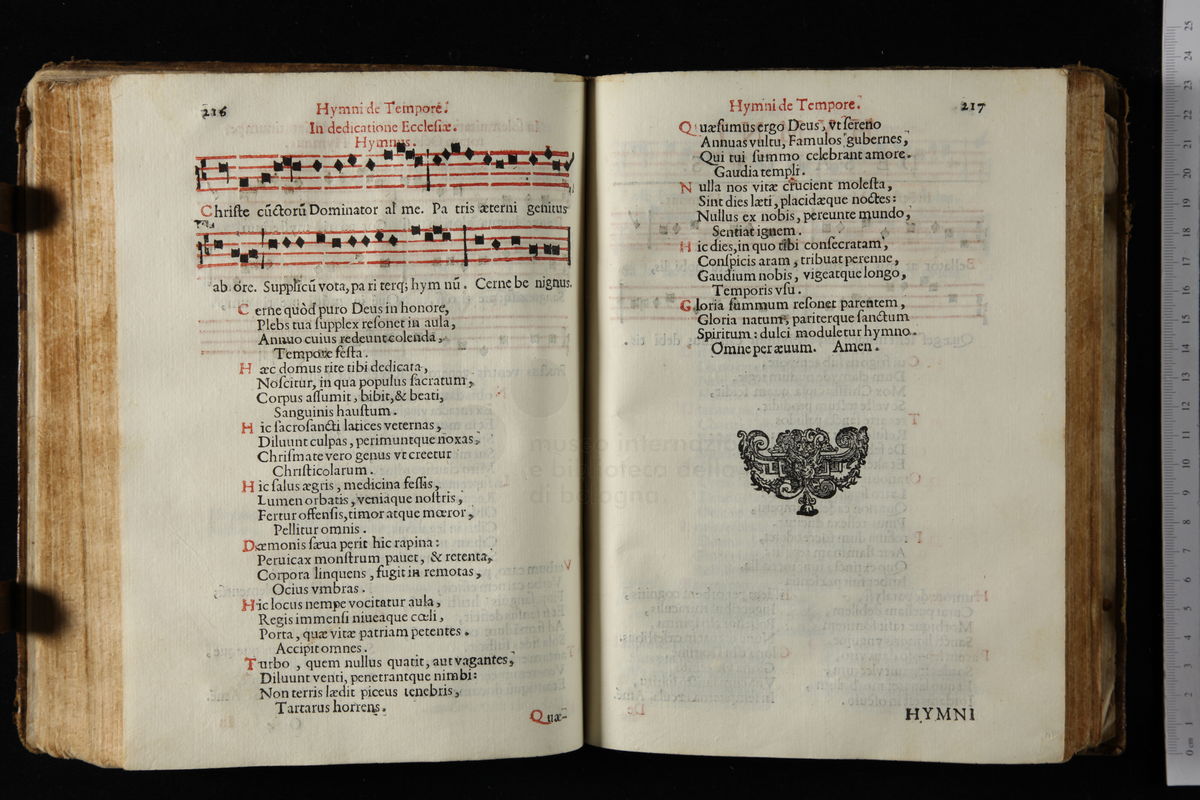 216
Hymni de Tempore.
In dedicatione Ecclesiæ.
Hymnus.
Christe cūctorū Dominator al me. Pa tris æterni genitus
ab ore. Supplicū vota, pa ri terq; hym nū. Cerne be nignus.
Cerne quòd puro Deus in honore,
Plebs tua supplex resonet in aula,
Annuo cuius redeunt colenda,
Tempore festa.
Hæc domus rite tibi dedicata,
Noscitur, in qua populus sacratum,
Corpus assumit, bibit, & beati,
Sanguinis haustum.
Hic sacrosancti latices veternas,
Diluunt culpas, perimuntque noxas,
Chrismate vero genus vt creetur
Christicolarum.
Hic salus ægris, medicina fessis,
Lumen orbatis, veniaque nostris,
Fertur offensis, timor atque mœror,
Pellitur omnis.
Dæmonis sæua perit hic rapina:
Peruicax monstrum pauet, & retenta,
Corpora linquens, fugit in remotas,
Ocius vmbras.
Hic locus nempe vocitatur aula,
Regis immensi niueaque cœli,
Porta, quæ vitæ patriam petentes.
Accipit omnes.
Turbo, quem nullus quatit, aut vagantes,
Diluunt venti, penetrantque nimbi:
Non terris lædit piceus tenebris,
Tartarus horrens.
Quæ-
Hymni de Tempore.
217
Quæsumus ergo Deus, vt sereno
Annuas vultu, Famulos gubernes,
Qui tui summo celebrant amore.
Gaudia templi.
Nulla nos vitæ crucient molesta,
Sint dies læti, placidæque noctes:
Nullus ex nobis, pereunte mundo,
Sentiat ignem.
Hic dies, in quo tibi consecratam,
Conspicis aram, tribuat perenne,
Gaudium nobis, vigeatque longo,
Temporis vsu.
Gloria summum resonet parentem,
Gloria natum, pariterque sanctum
Spiritum: dulci moduletur hymno.
Omne per æuum. Amen.
HYMNI